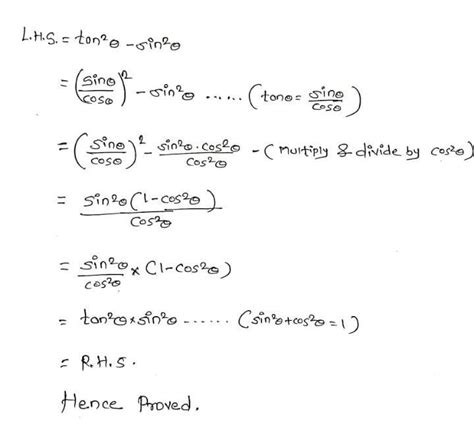 L.H.S. = tan²θ - sin²θ
= (sinθ/cosθ)² - sin²θ ...... (tanθ = sinθ/cosθ)
= (sinθ/cosθ)² - sin²θ.cos²θ/cos²θ - (Multiply & divide by cos²θ)
= sin²θ(1-cos²θ)/cos²θ
= sin²θ/cos²θ × (1-cos²θ)
= tan²θ × sin²θ ...... (sin²θ+cos²θ=1)
= R.H.S.
Hence Proved.